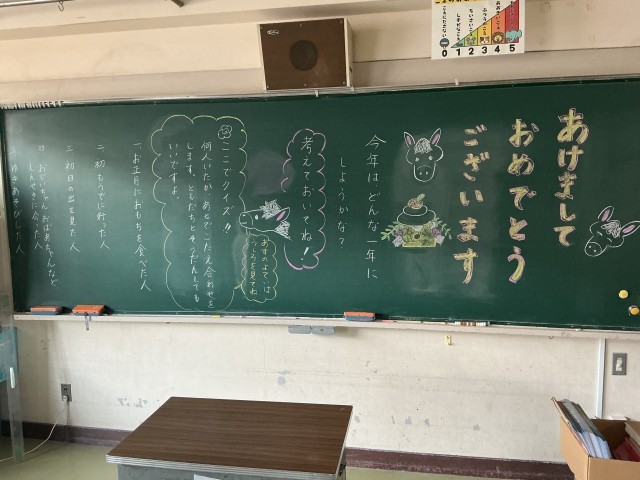 あけまして
おめでとう
ございます
今年は、どんな一年に
しようかな?
考えておいてね!
ここでクイズ!!
何人いたか、あとでこたえ合わせを
します。ともだちとそうだんしても
いいですよ。
一、お正月におもちを食べた人
二、初もうでに行った人
三、初日の出を見た人
四、おじいちゃん、おばあちゃんなど
しんせきに会った人
雪あそびした人
0 1 2 3 4 5